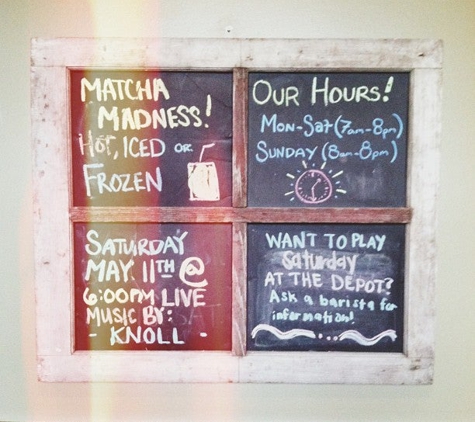 MATCHA
MADNESS!
HOT, ICED OR
FROZEN
OUR HOURS!
MON-SAT (7am-8pm)
SUNDAY (8am-8pm)
SATURDAY
MAY 11TH @
6:00PM LIVE
MUSIC BY:
- KNOLL -
WANT TO PLAY
Saturday
AT THE DEPOT?
Ask a barista for
information!